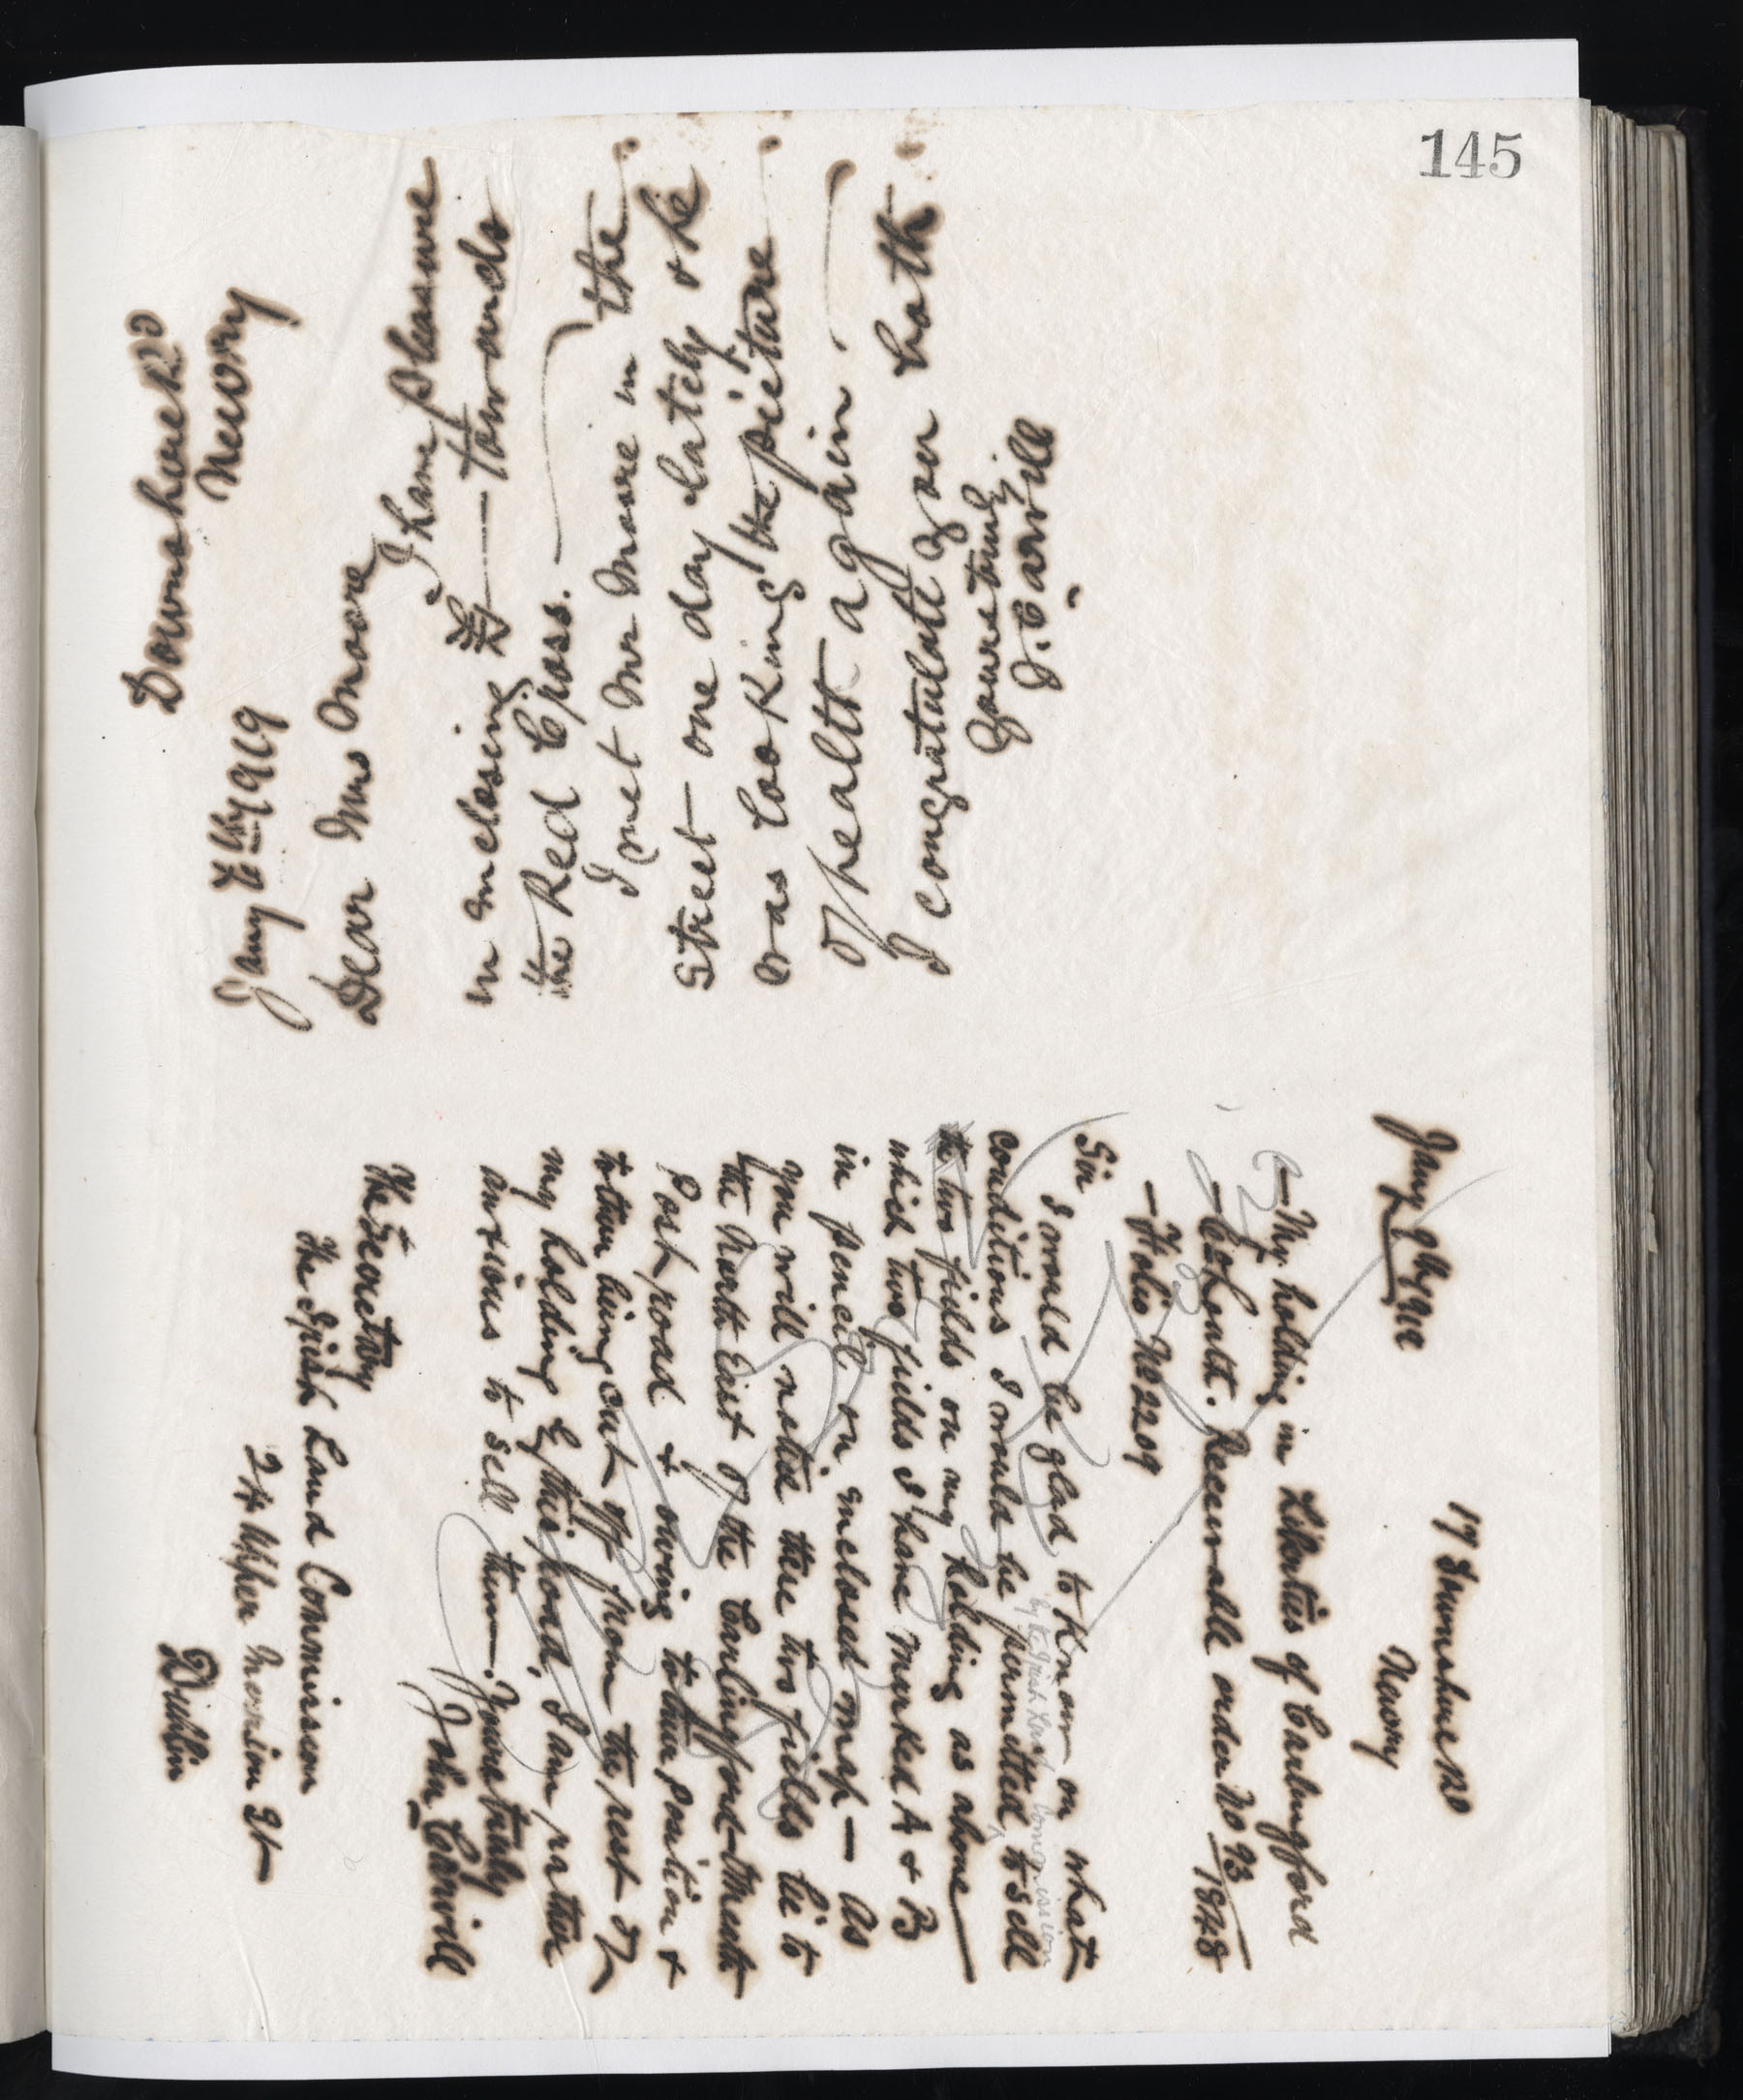 145
Downshire Rd
Newry
Jany 7th 1919
Dear Mrs Moore
I have pleasure
in inclosing £ — towards
the Red Cross.
I met Mr Moore in the
street one day lately & he
was looking the picture
of health again.
I congratulate you both
Yours truly
J. Carvill
17 Downshire Rd
Newry
Jany 9th
— My holding in Liberties of Carlingford
Receivable order No 93
1848
— Folio No 2209
Sir
I would be glad to know on what
by the Irish Land Commission
conditions I would be permitted to sell
the two fields on my holding as above
which two fields I have marked A & B
in pencil on inclosed map — As
you will notice these two fields lie to
the North East of the Carlingford-Omeath
Post road & owing to their position &
to their being cut off from the rest of
my holding by this road, I am rather
anxious to sell them. Yours truly
John Carvill
The Secretary
The Irish Land Commission
24 Upper Merrion St
Dublin